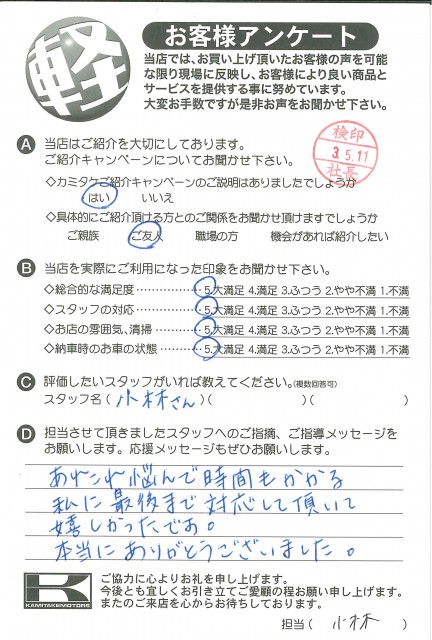 軽
お客様アンケート
当店では、お買い上げ頂いたお客様の声を可能
な限り現場に反映し、お客様により良い商品と
サービスを提供する事に努めています。
大変お手数ですが是非お声をお聞かせ下さい。
検印
3.5.11
社長
A 当店はご紹介を大切にしております。
ご紹介キャンペーンについてお聞かせ下さい。
◇カミタケご紹介キャンペーンのご説明はありましたでしょうか
はい いいえ
◇具体的にご紹介頂ける方とのご関係をお聞かせ頂けますでしょうか
ご親族 ご友人 職場の方 機会があれば紹介したい
B 当店を実際にご利用になった印象をお聞かせ下さい。
◇総合的な満足度 ・・・・・・・・・・・ 5.大満足 4.満足 3.ふつう 2.やや不満 1.不満
◇スタッフの対応 ・・・・・・・・・・・ 5.大満足 4.満足 3.ふつう 2.やや不満 1.不満
◇お店の雰囲気、清掃 ・・・・・・・ 5.大満足 4.満足 3.ふつう 2.やや不満 1.不満
◇納車時のお車の状態 ・・・・・・・ 5.大満足 4.満足 3.ふつう 2.やや不満 1.不満
C 評価したいスタッフがいれば教えてください。(複数回答可)
スタッフ名 ( 小林さん )( )( )
D 担当させて頂きましたスタッフへのご指摘、ご指導メッセージを
お願いします。応援メッセージもぜひお願いします。
あれこれ悩んで時間もかかる
私に最後まで対応して頂いて
嬉しかったです。
本当にありがとうございました。
K
KAMITAKEMOTORS
ご協力に心よりお礼を申し上げます。
今後とも宜しくお引き立てご愛顧の程お願い申し上げます。
またのご来店を心からお待ちしております。
担当 ( 小林 )